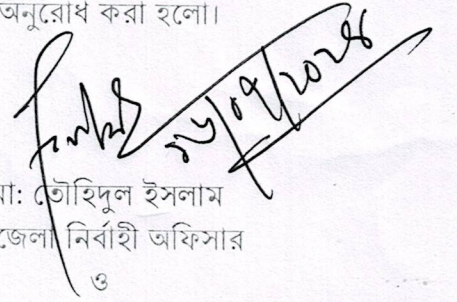 অনুরোধ করা হলো।
১৬/০৭/২০২৪
মো: তৌহিদুল ইসলাম
জেলা নির্বাহী অফিসার
ও